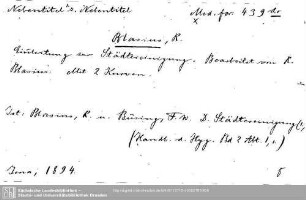 Nebentitel z. Nebentitel
Med. for. 439 dv
Blasius, R.
Einleitung zur Städtereinigung. Bearbeitet von R.
Blasius. Mit 2 Kurven.
Ist: Blasius, R. u. Büsing, F. W. D. Städtereinigung
(Handb. d. Hyg. Bd 2 Abt. 1,1)
Jena, 1894.
8
Sächsische Landesbibliothek -
Staats- und Universitätsbibliothek Dresden